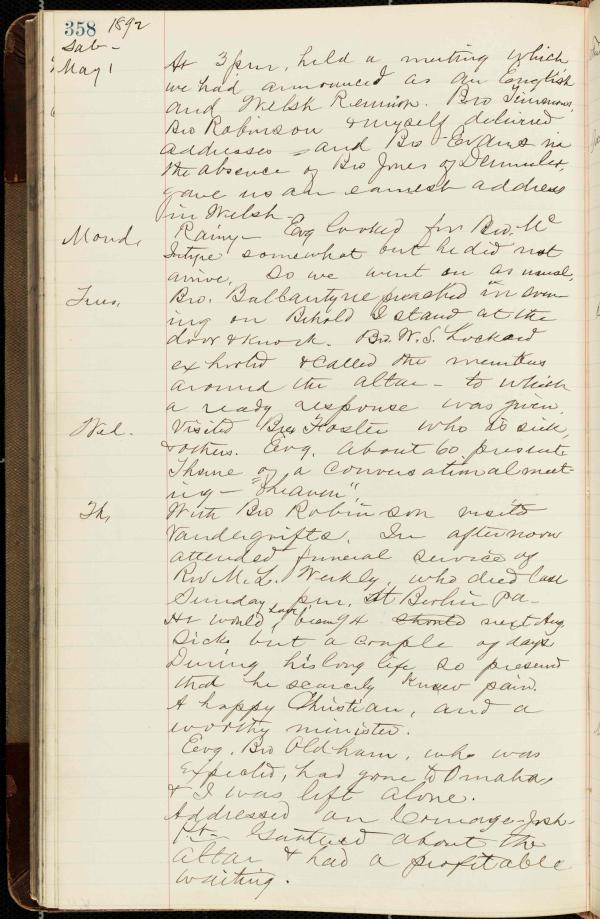 358 1892
Sab-
May 1
At 3 p.m. held a meeting which
we had announced as an English
and Welsh Reunion. Bro Simmons,
Bro Robinson & myself delivered
addresses - and Bro Evans in
the absence of Bro Jones of
gave us an earnest address
in Welsh-
Mond, Rainy- Evg looked for Bro. Mc
Intyre somewhat but he did not
arrive. So we went on as usual,
Tues, Bro. Ballantyne preached in even-
ing on Behold I stand at the
door & knock. Bro. W. S. Lockard
exhorted & called the members
around the altar - to which
a ready response was given.
Wed. Visited Bro Foster who is sick,
& others. Evg. About 60 present
Theme of a conversational meet-
ing - "Heaven".
Th, With Bro Robinson visited
Vandergrifts. In afternoon
attended funeral service of
Rev M. L. Weekly, who died last
Sunday p.m. at Berlin Pa-
He would have been 94 should next Aug
Sick but a couple of days.
During his long life so preserved
that he scarcely knew pain.
A happy Christian, and a
worthy minister.
Evg. Bro Oldham, who was
expected, had gone to Omaha,
& I was left alone.
Addressed on Courage - Josh-
Gathered about the
altar & had a profitable
waiting.